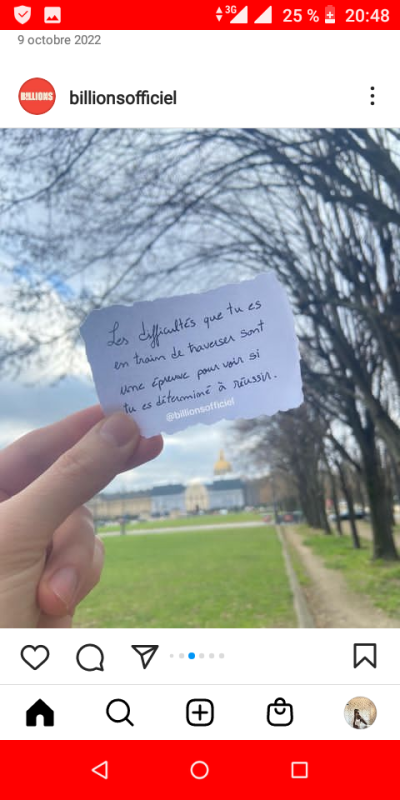 3G 25 % 20:48
9 octobre 2022
BILLIONS billionsofficiel
Les difficultés que tu es
en train de traverser sont
une épreuve pour voir si
tu es déterminé à réussir.
@billionsofficiel